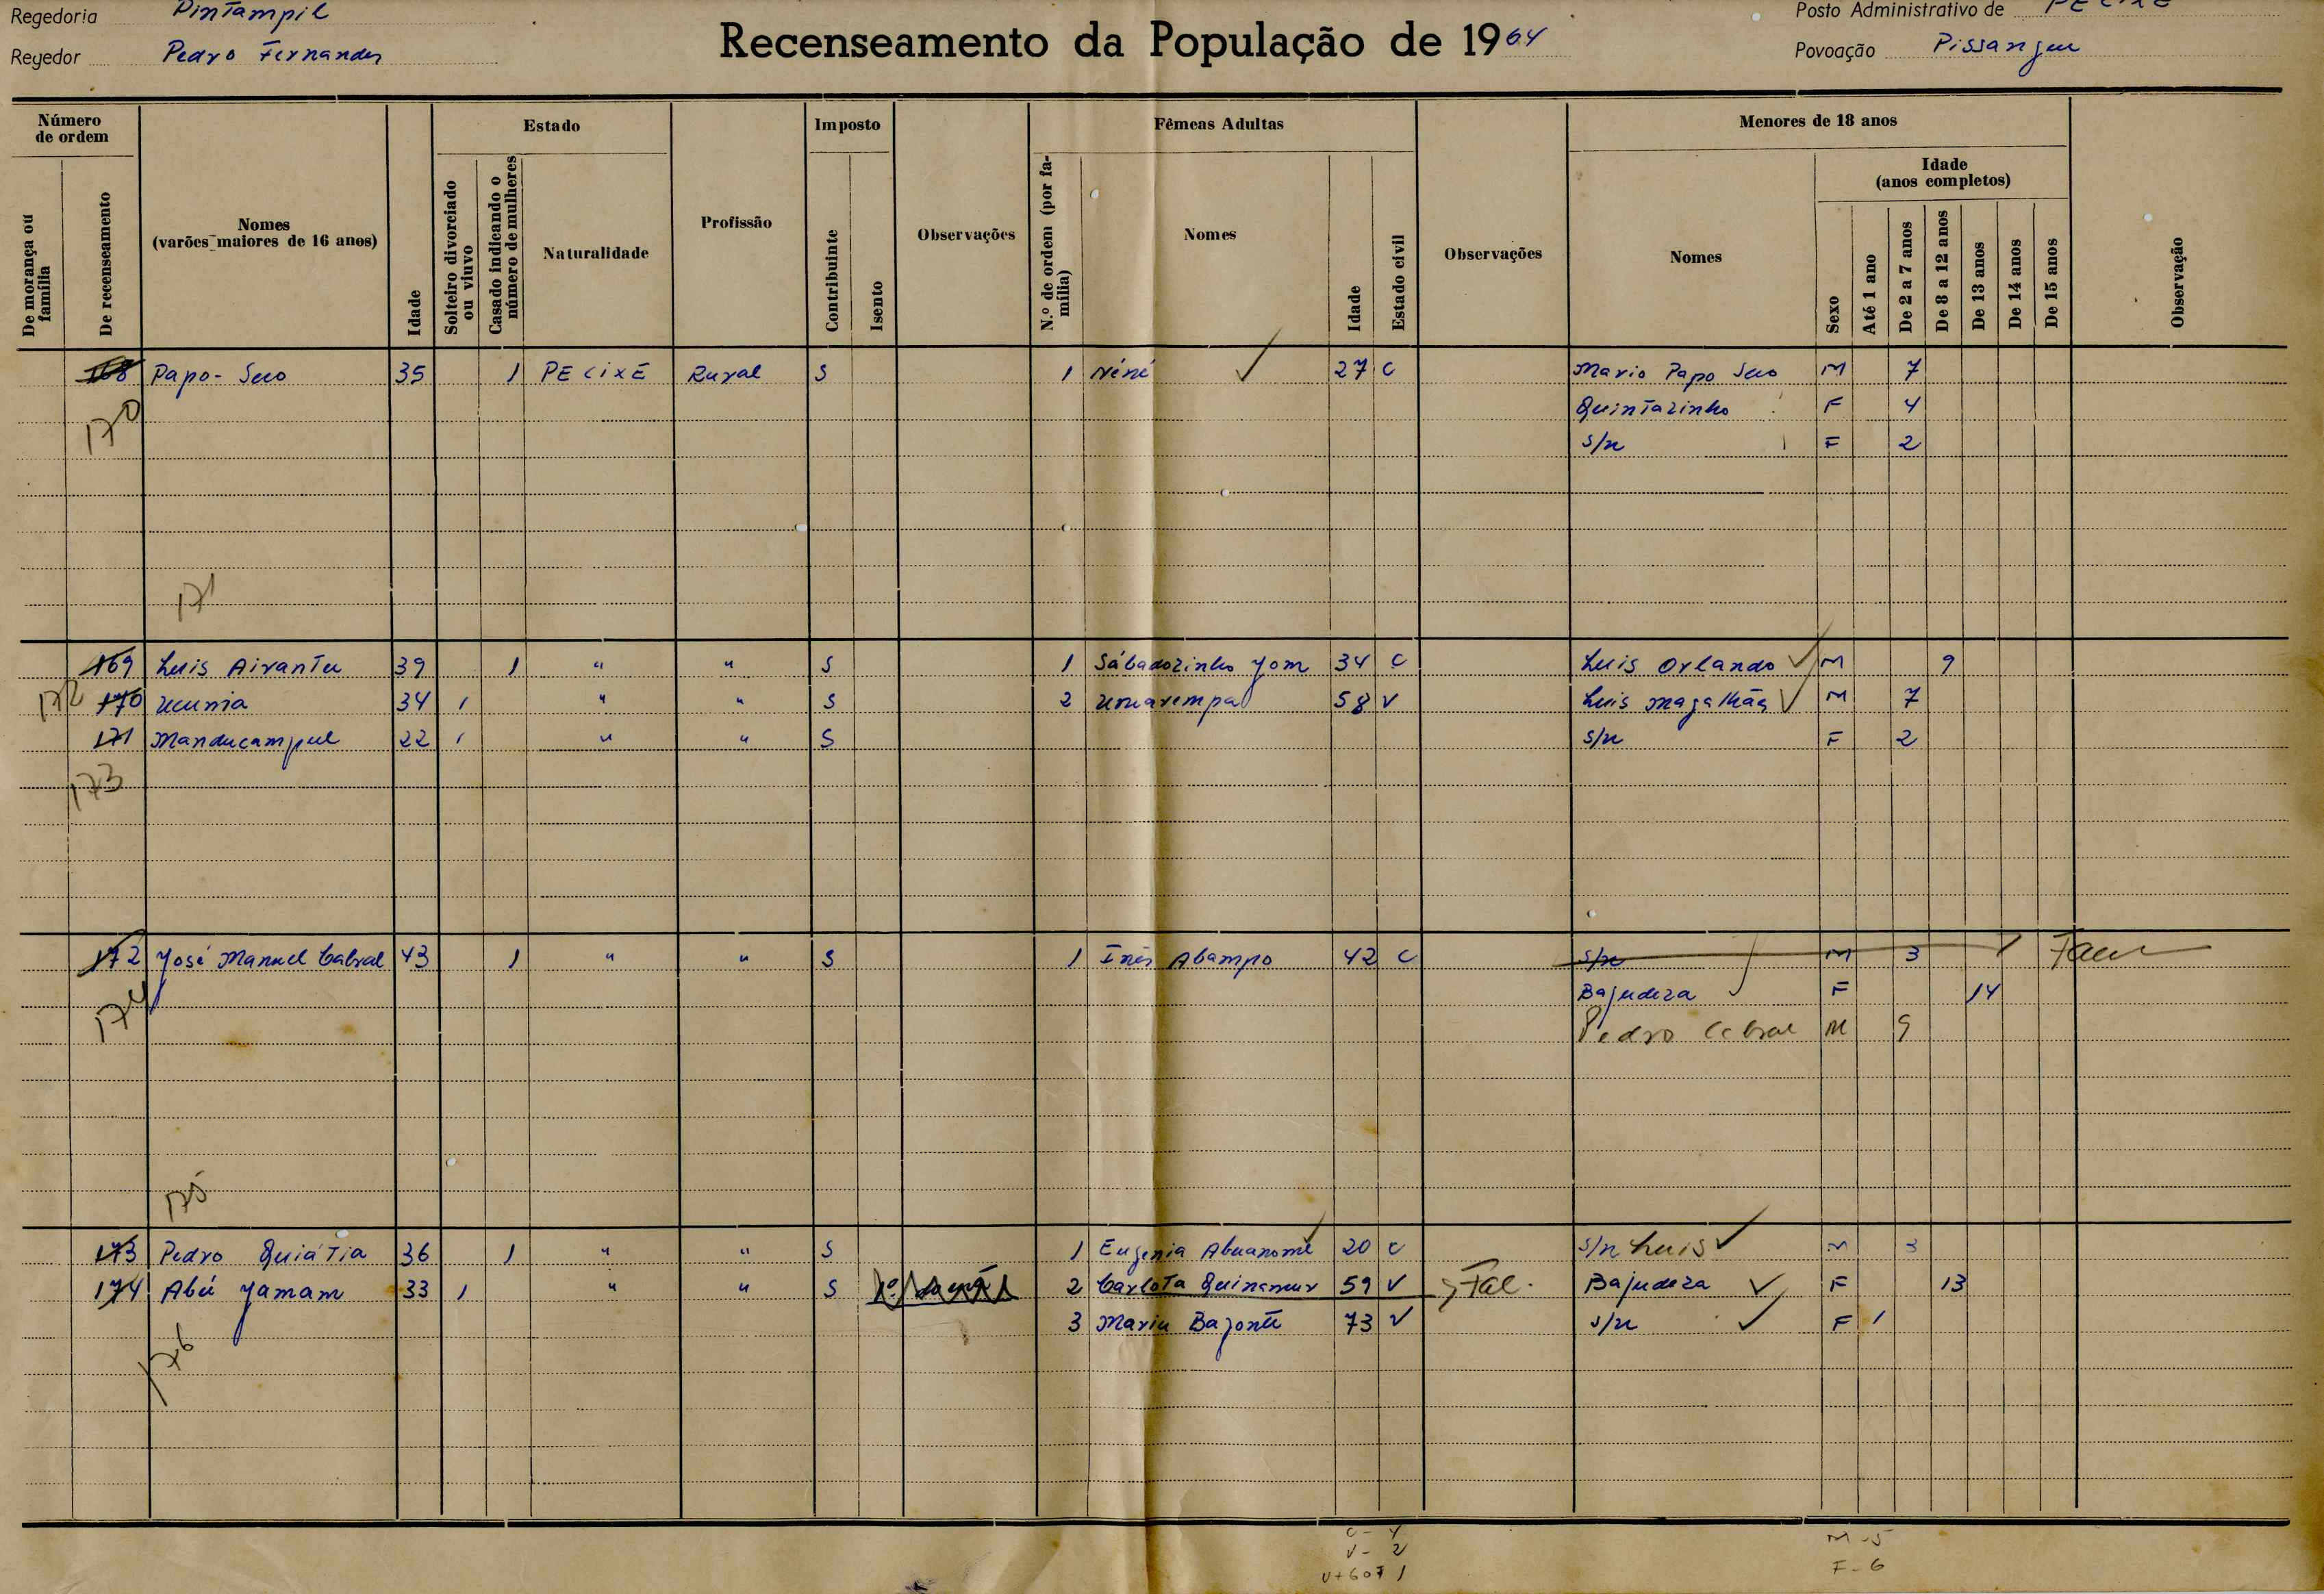 Regedoria Pintampil
Regedor Pedro Fernandes
Recenseamento da População de 1964
Posto Administrativo de PECIXE
Povoação Pissangue
Número de ordem
De morança ou família
De recenseamento
Nomes (varões maiores de 16 anos)
Idade
Estado
Solteiro divorciado ou viuvo
Casado indicando o número de mulheres
Naturalidade
Profissão
Imposto
Contribuinte
Isento
Observações
Fêmeas Adultas
N.º de ordem (por família)
Nomes
Idade
Estado civil
Observações
Menores de 18 anos
Nomes
Sexo
Idade (anos completos)
Até 1 ano
De 2 a 7 anos
De 8 a 12 anos
De 13 anos
De 14 anos
De 15 anos
Observação
168 Papo-Seco 35 1 PECIXE Rural S 1 Néné 27 C Mario Papo Seco M 7
170 Quintazinho F 4
s/n F 2
171
169 Luis Airantu 39 1 " " S 1 Sábadozinho Yom 34 C Luis Orlando M 9
172 170 Ucunia 34 1 " " S 2 58 V Luis Magalhãs M 7
171 Manducampul 22 1 " " S s/n F 2
173
172 José Manuel Cabral 43 1 " " S 1 Inês Abampo 42 C s/n M 3
174 Bajudeza F 14
Pedro Cabral M 9
175
173 Pedro Quiátia 36 1 " " S 1 Eugenia Abuanomé 20 C s/n Luis M 3
174 Abú Yamam 33 1 " " S 2 Carlota Quinamur 59 V Fal. Bajudeza F 13
3 Maria 73 V s/n F 1
176
C - 4
V - 2
V+60 1
M - 5
F - 6